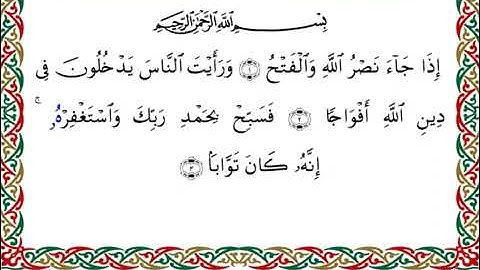 بِسْمِ اللَّهِ الرَّحْمَٰنِ الرَّحِيمِ
إِذَا جَآءَ نَصْرُ اللَّهِ وَالْفَتْحُ ١ وَرَأَيْتَ النَّاسَ يَدْخُلُونَ فِى
دِينِ اللَّهِ أَفْوَاجًا ٢ فَسَبِّحْ بِحَمْدِ رَبِّكَ وَاسْتَغْفِرْهُ ۚ
إِنَّهُۥ كَانَ تَوَّابًا ٣